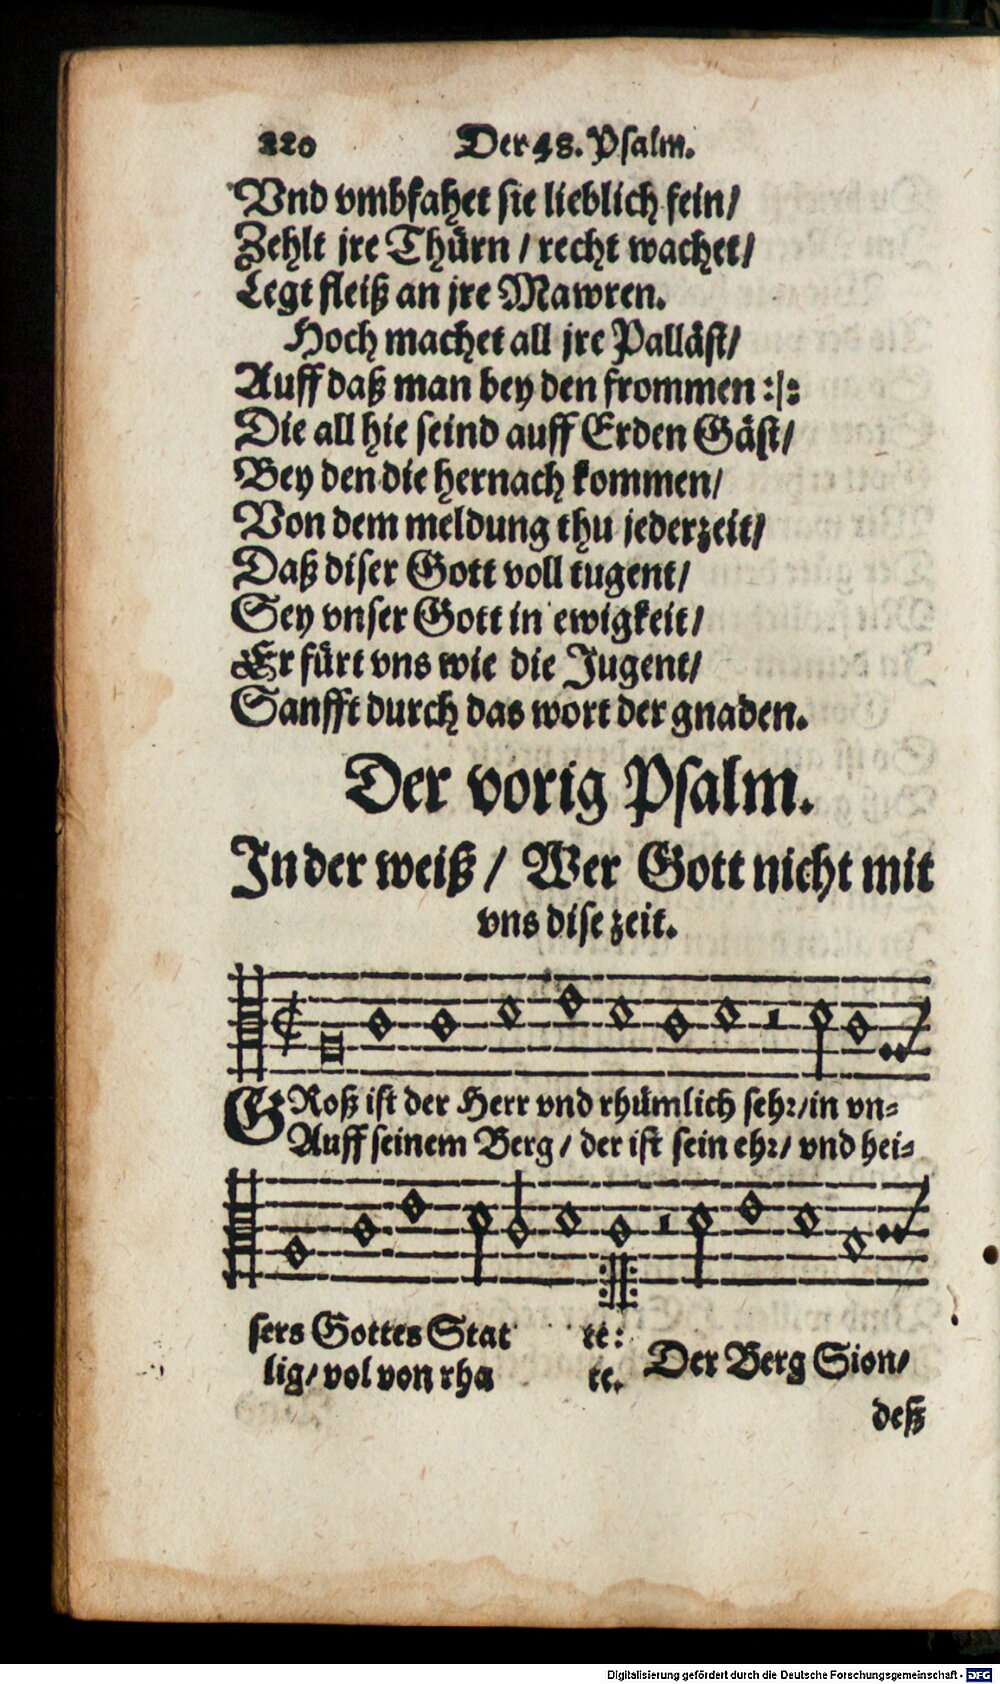 220 Der 48. Psalm.
Vnd vmbfahet sie lieblich fein/
Zehlt jre Thürn / recht wachet/
Legt fleiß an jre Mawren.
Hoch machet all jre Palläst/
Auff daß man bey den frommen :|:
Die all hie seind auff Erden Gäst/
Bey den die hernach kommen/
Von dem meldung thu jederzeit/
Daß diser Gott voll tugent/
Sey vnser Gott in ewigkeit/
Er fürt vns wie die Jugent/
Sanfft durch das wort der gnaden.
Der vorig Psalm.
In der weiß / Wer Gott nicht mit
vns dise zeit.
GRoß ist der Herr vnd rhümlich sehr/in vn=
Auff seinem Berg / der ist sein ehr/ vnd hei=
sers Gottes Stat te:
lig/ vol von rha te.
Der Berg Sion/
deß
Digitalisierung gefördert durch die Deutsche Forschungsgemeinschaft - DFG